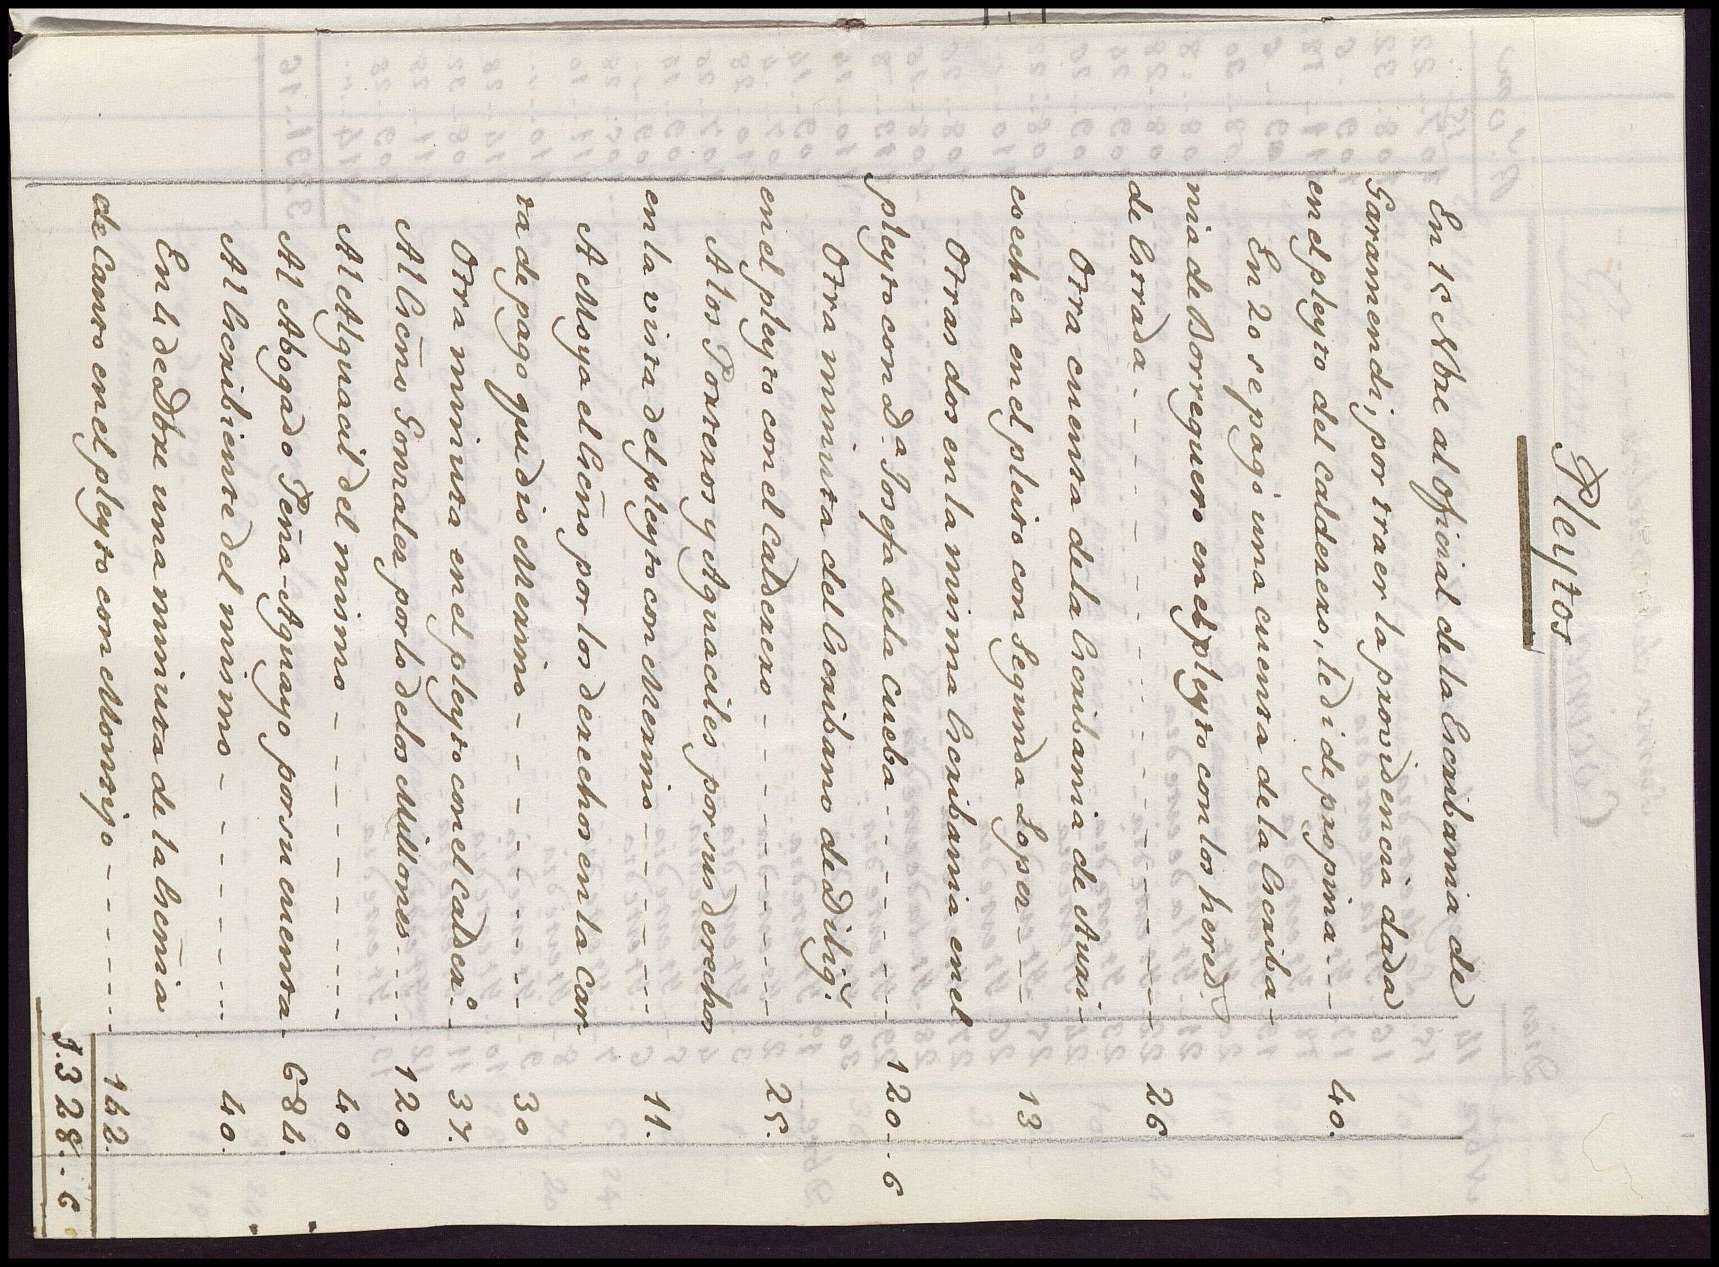 Pleytos
En 15 Nbre al oficial de la Escribania de
Garamendi, por traer la providencia dada
en el pleyto del calderero, le di de propina - - - 40.
En 20 se pagó una cuenta de la Escriba-
nia de Borreguero en el pleyto con los hered.s
de Estrada - - - - - - - - - - - - 26
Otra cuenta de la Escribania de Auri-
coechea en el pleito con Segunda Lopez - - - 13
Otras dos en la misma Escribania en el
pleyto con D.a Josefa de la Cueba - - - - - - - 120 - - 6
Otra minuta del Escribano de Dilig.s
en el pleyto con el Calderero - - - - - - - - 25.
A los Porteros y Aguaciles por sus derechos
en la vista del pleyto con Merino - - - - - - - 11.
A Moya el Escno por los derechos en la Car-
ta de pago que dio Merino - - - - - - - - 30
Otra minuta en el pleyto con el Calder.o - 37.
Al Escno Gonzalez por lo de los Millones - - - 120
Al Alguacil del mismo - - - - - - - - - 40
Al Abogado Peña-Aguayo por su cuenta - 684.
Al Escribiente del mismo - - - - - - - - 40.
En 4 de Dbre una minuta de la Escnia
de Canto en el pleyto con Montijo - - - - - - 142.
1.328 - - 6